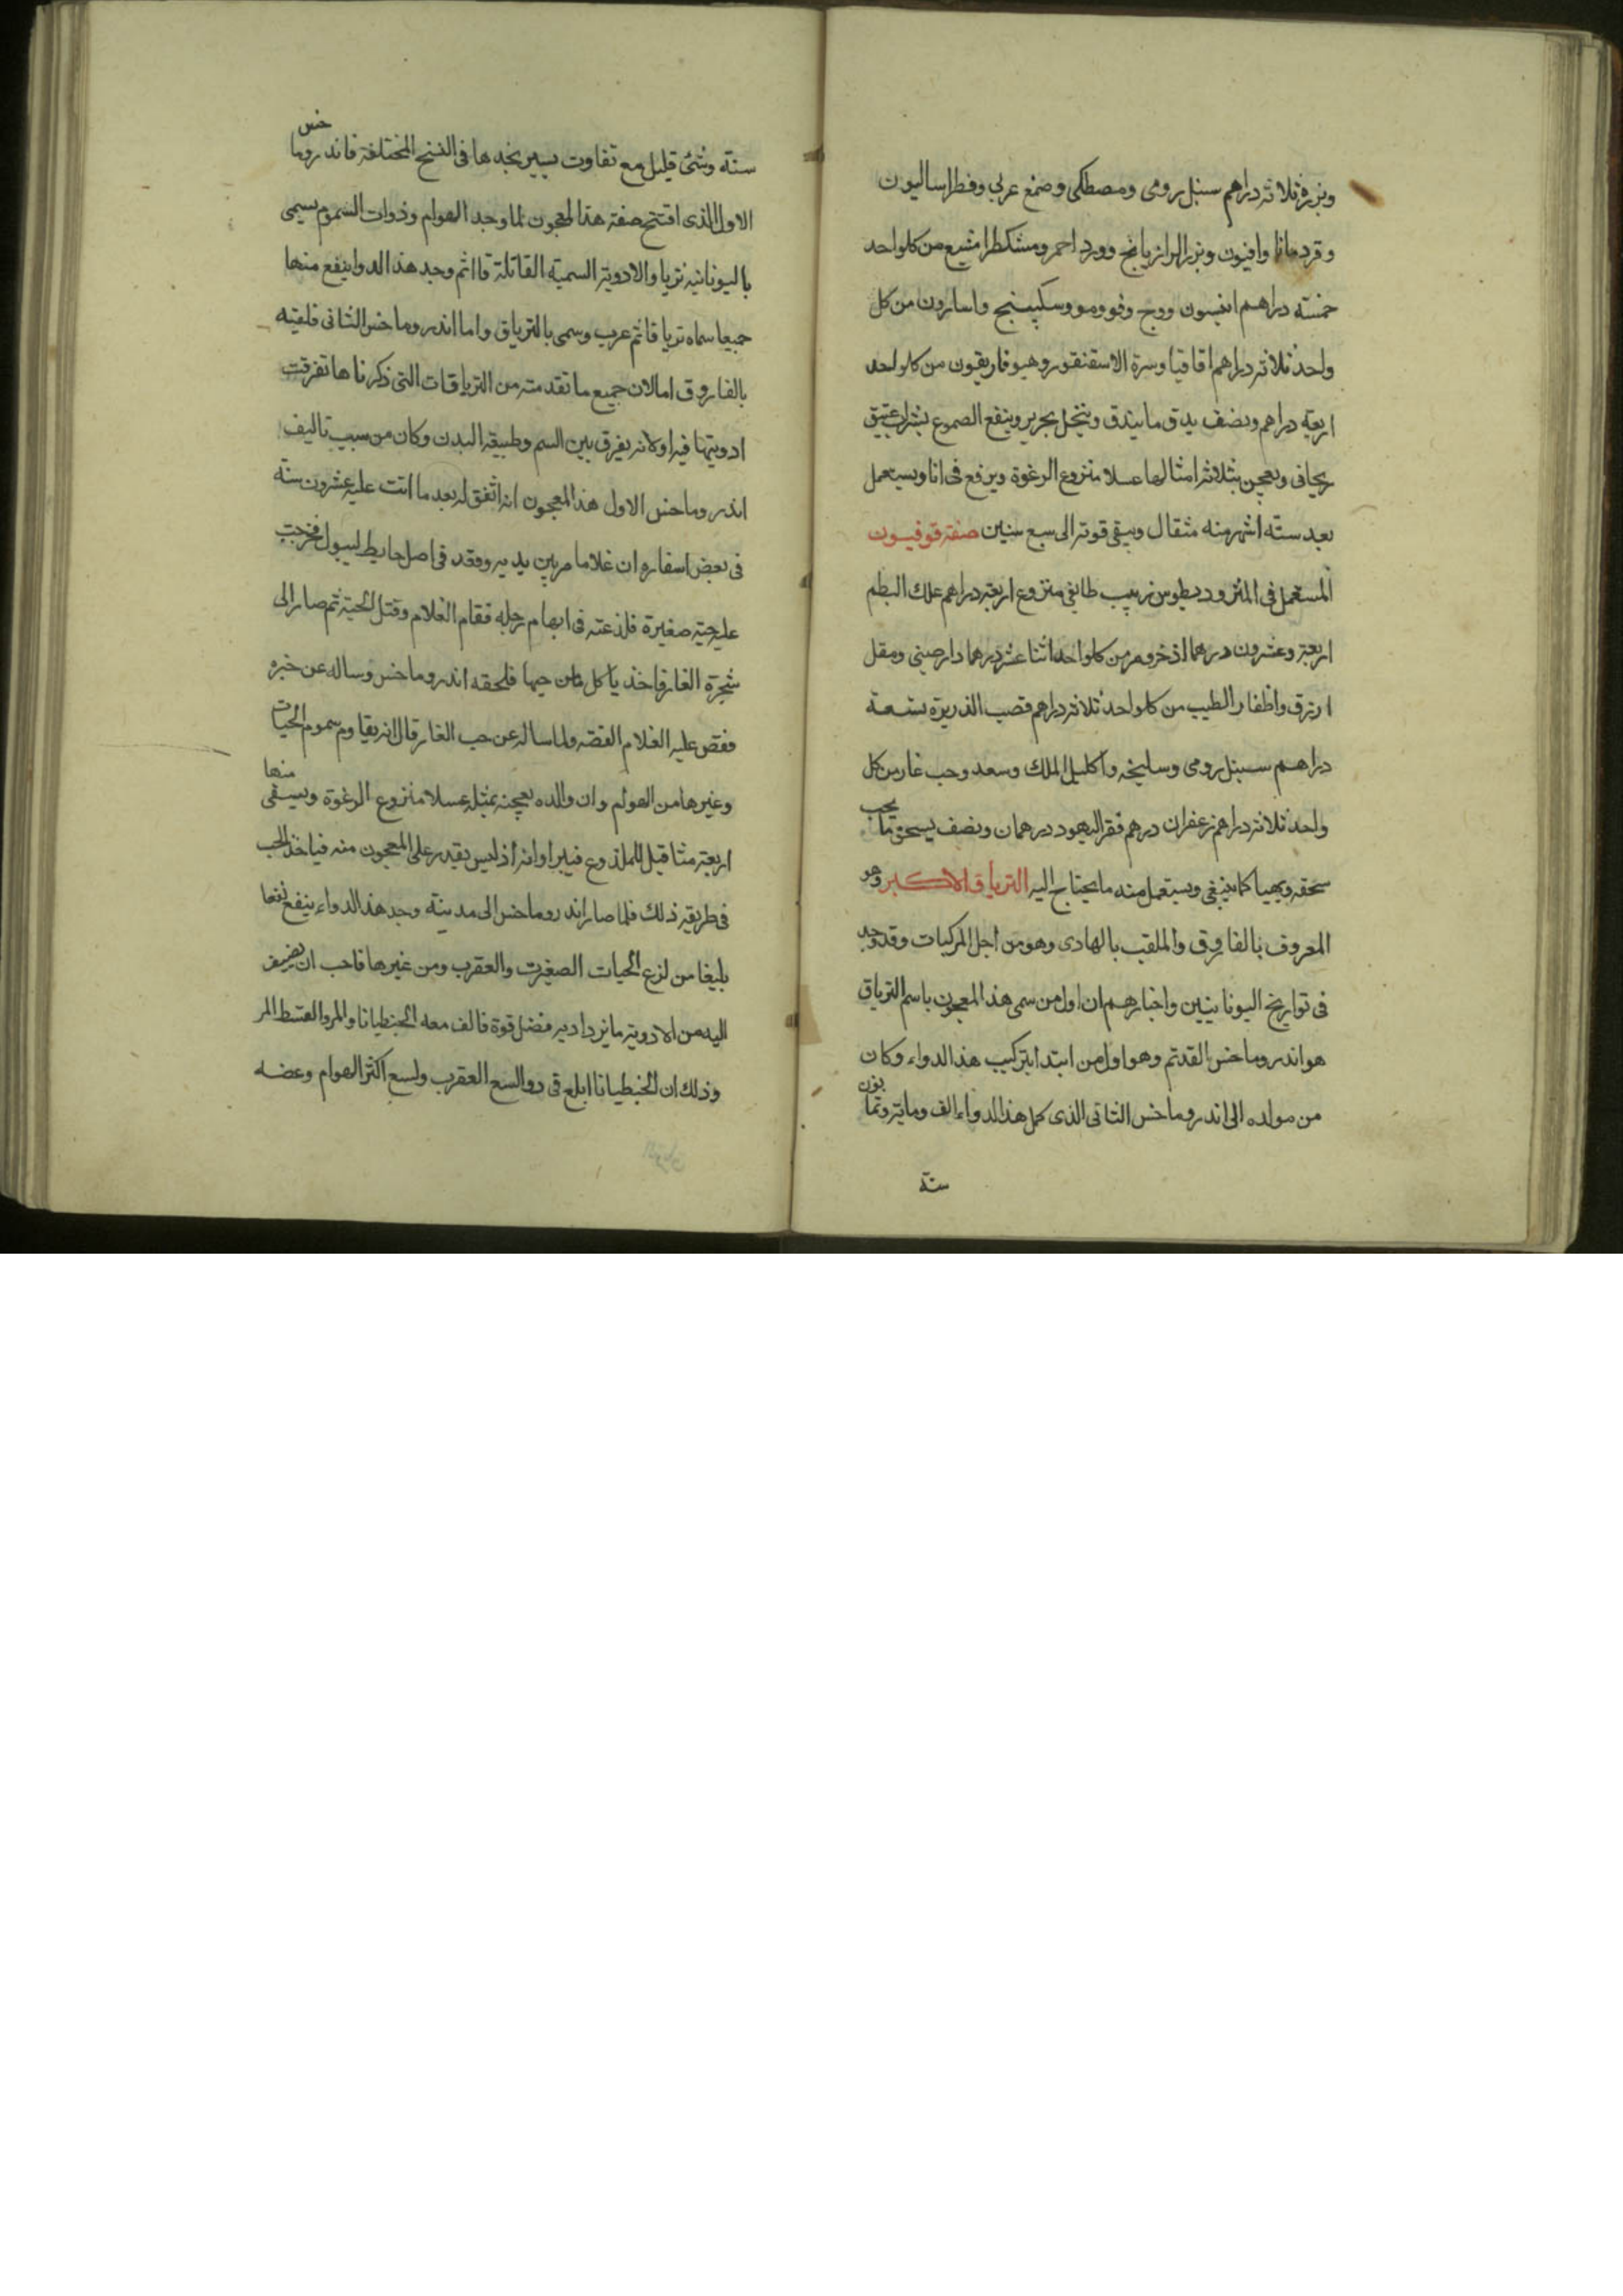 وبزره ثلاثه دراهم سنبل رومى ومصطكى وصمغ عربي وفطراساليون
وقردمانا وافيون وبزر الرازيانج وورد احمر ومشكطرامشيع من كل واحد
خمسته دراهم انيسون ووج وفو ومو وسكبينج واسارون من كل
واحد ثلاثه دراهم اقاقيا وسرة الاسقنقور وهيوفاريقون من كل واحد
اربعة دراهم ونصف يدق ما يندق وينخل بحرير وينقع الصموغ بشراب عتيق
ريحانى ويعجن بثلاثه امثالها عسلا منزوع الرغوة ويرفع فى انا ويستعمل
بعد سته اشهر منه مثقال ويبقى قوته الى سبع سنين صفة قوفيون
المستعمل فى المثروديطوس زبيب طايفى منزوع اربعة دراهم علك البطم
اربعة وعشرون درهما اذخر ومر من كل واحد اثنا عشر درهما دارصينى ومقل
ازرق واظفار الطيب من كل واحد ثلاثه دراهم قصب الذريره تسعة
دراهم سنبل رومى وسليخه واكليل الملك وسعد وحب غار من كل
واحد ثلاثه دراهم زعفران درهم فقر اليهود درهمان ونصف يسحق ما يجب
سحقه ويهيا كما ينبغى ويستعمل منه ما يحتاج اليه الترياق الاكبر وهو
المعروف بالفاروق والملقب بالهادى وهو من اجل المركبات وقد وجد
فى تواريخ اليونانيين واخبارهم ان اول من سمى هذا المعجون باسم الترياق
هو اندروماخس القديم وهو اول من ابتدا بتركيب هذا الدواء وكان
من مولده الى اندروماخس الثانى الذى كمل هذا الدواء الف ومايه وثمانون
سنة
سنة وشئ قليل مع تفاوت يسير نجدها فى النسخ المختلفة فاندروماخس
الاول الذى افتتح صفة هذا المعجون لما وجد الهوام وذوات السموم يسمى
باليونانية تريا والادوية السمية القاتلة قاا ثم وجد هذا الدوا ينفع منها
جميعا سماه ترياقا ثم عرب وسمى بالترياق واما اندروماخس الثانى فلقبه
بالفاروق اما لان جميع ما تقدمته من الترياقات التى ذكرناها تفرقت
ادويتها فيه اولانه يفرق بين السم وطبيعة البدن وكان من سبب تاليف
اندروماخس الاول هذا المعجون انه اتفق له بعد ما اتت عليه عشرون سنة
فى بعض اسفاره ان غلاما مر بين يديه وقعد فى اصل حايط ليبول فخرجت
عليه حية صغيرة فلذغته فى ابهام رجله فقام الغلام وقتل الحية ثم صار الى
شجرة الغار فاخذ ياكل من حبها فلحقه اندروماخس وساله عن خبره
فقص عليه الغلام القصه ولما ساله عن حب الغار قال انه يقاوم سموم الحيات
وغيرها من الهوام وان والده يعجنه بمثله عسلا منزوع الرغوة ويسقى منها
اربعة مثاقيل للملذوع فيبرا وانه اذ ليس يقدر على المعجون منه فياخذ الحب
فى طريقه ذلك فلما صار اندروماخس الى مدينة وجد هذا الدواء ينفع نفعا
بليغا من لزع الحيات الصغيرت والعقرب ومن غيرها فاحب ان يضيف
اليه من الادوية ما يزداد به فضل قوة فالف معه الجنطيانا والمر والقسط المر
وذلك ان الجنطيانا ابلغ فى دوا لسع العقرب ولسع اكثر الهوام وعضه